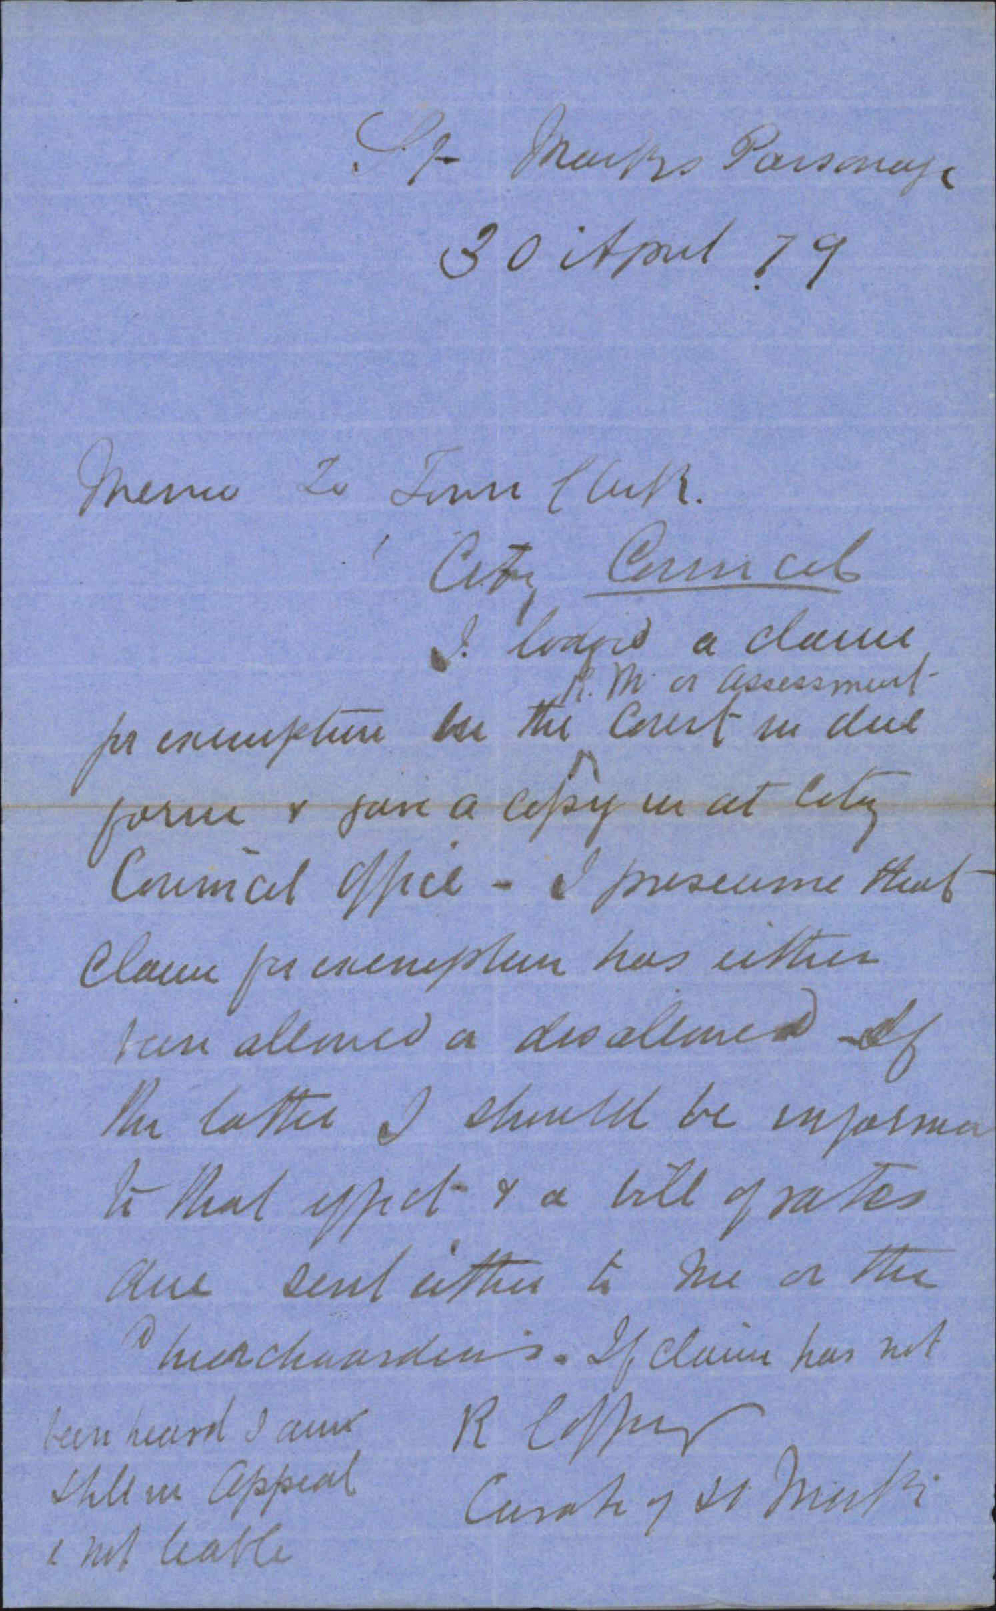 St Marks Parsonage
30 April 79
Memo to Town Clerk.
City Council
I lodged a claim
R. M. or Assessment
for exemption in the Court in due
form & gave a copy in at City
Council Office - I presume that
Claim for exemption has either
been allowed or disallowed - If
the latter I should be informed
to that effect & a bill of rates
due sent either to me or the
Churchwardens. If claim has not
been heard I am
still in Appeal
& not liable
R
Curate of St Marks